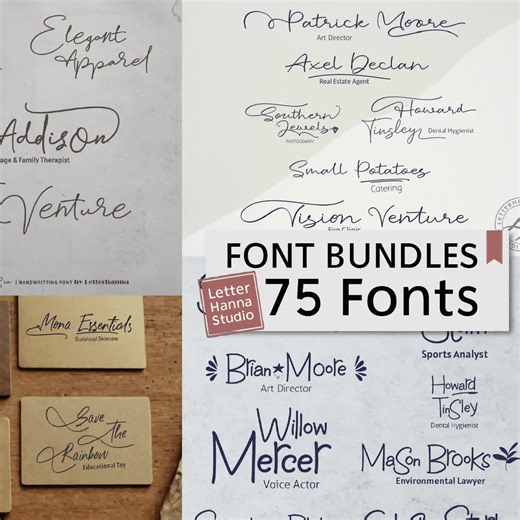 Elegant
Apparel
AddisOn
age & Family Therapist
Venture
HANDWRITTING FONT by Letterhanna
Mona Essentials
Botanical Skincare
Save
The
Rainbow
Educational Toy
Patrick Moore
Art Director
Axel Declan
Real Estate Agent
Southern
Jewels
PHOTOGRAPHY
Howard
Tinsley Dental Hygienist
Small Potatoes
Catering
Vision Venture
Eye Clinic
FONT BUNDLES
Letter
Hanna
Studio
75 Fonts
Sports Analyst
Brian Moore
Art Director
Howard
TinSley
Dental Hygienist
Willow
Mercer
Voice Actor
MaSon Brooks
Environmental Lawyer